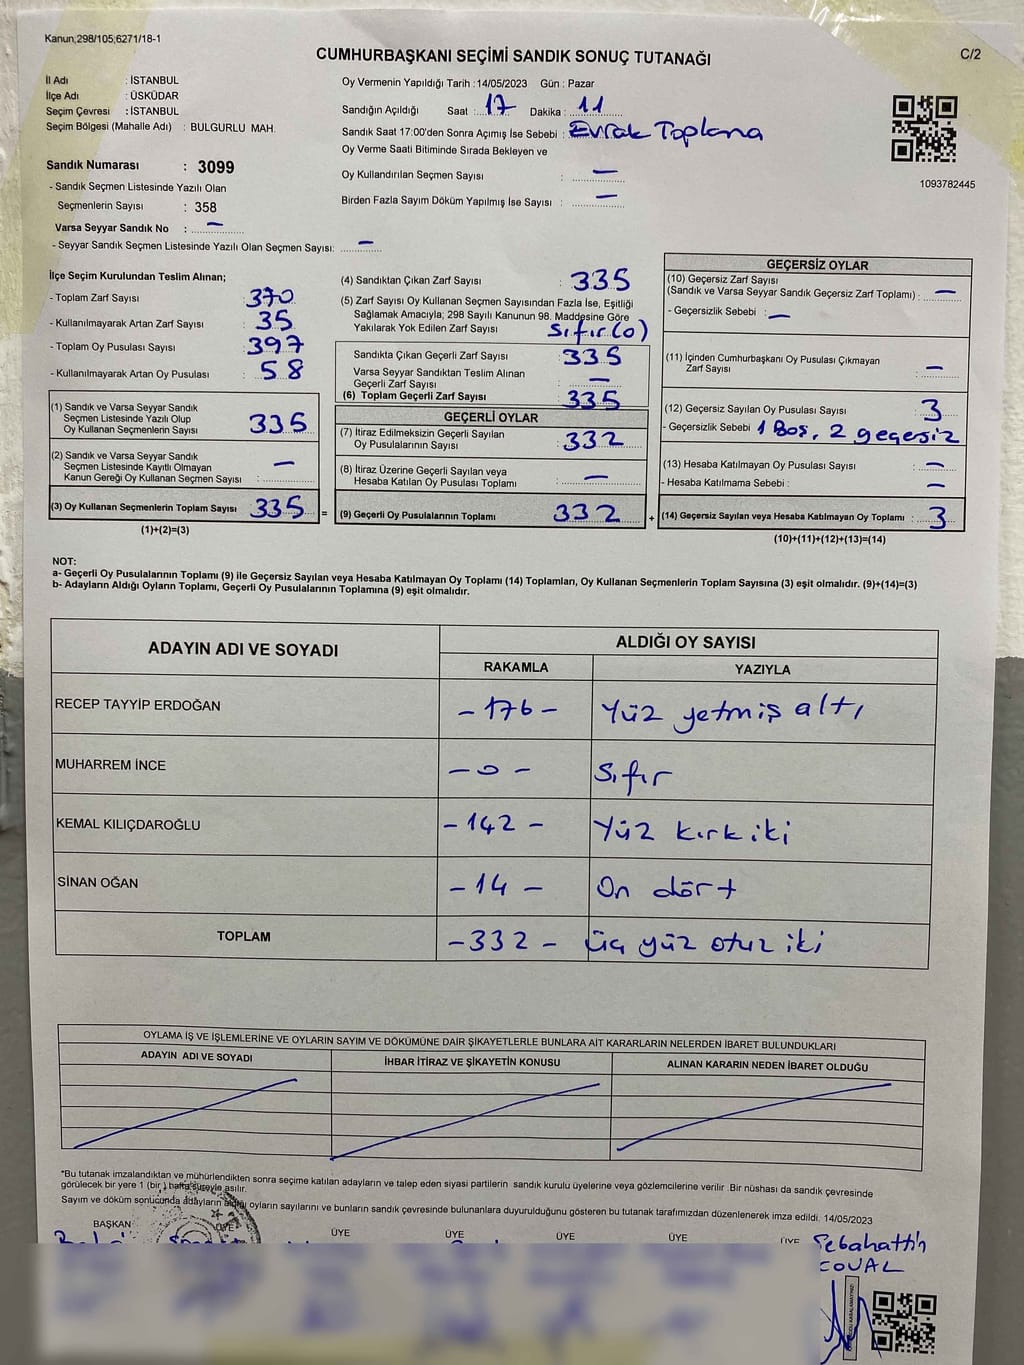 Kanun;298/105;6271/18-1
CUMHURBAŞKANI SEÇİMİ SANDIK SONUÇ TUTANAĞI
C/2
İl Adı : İSTANBUL
İlçe Adı : ÜSKÜDAR
Seçim Çevresi : İSTANBUL
Seçim Bölgesi (Mahalle Adı) : BULGURLU MAH.
Sandık Numarası : 3099
- Sandık Seçmen Listesinde Yazılı Olan
Seçmenlerin Sayısı : 358
Varsa Seyyar Sandık No : —
- Seyyar Sandık Seçmen Listesinde Yazılı Olan Seçmen Sayısı: —
Oy Vermenin Yapıldığı Tarih : 14/05/2023 Gün : Pazar
Sandığın Açıldığı Saat : 17 Dakika : 11
Sandık Saat 17:00'den Sonra Açımış İse Sebebi : Evrak Toplama
Oy Verme Saati Bitiminde Sırada Bekleyen ve
Oy Kullandırılan Seçmen Sayısı : —
Birden Fazla Sayım Döküm Yapılmış İse Sayısı : —
1093782445
İlçe Seçim Kurulundan Teslim Alınan;
- Toplam Zarf Sayısı : 370
- Kullanılmayarak Artan Zarf Sayısı : 35
- Toplam Oy Pusulası Sayısı : 397
- Kullanılmayarak Artan Oy Pusulası : 58
(1) Sandık ve Varsa Seyyar Sandık
Seçmen Listesinde Yazılı Olup
Oy Kullanan Seçmenlerin Sayısı : 335
(2) Sandık ve Varsa Seyyar Sandık
Seçmen Listesinde Kayıtlı Olmayan
Kanun Gereği Oy Kullanan Seçmen Sayısı : —
(3) Oy Kullanan Seçmenlerin Toplam Sayısı 335 =
(1)+(2)=(3)
(4) Sandıktan Çıkan Zarf Sayısı : 335
(5) Zarf Sayısı Oy Kullanan Seçmen Sayısından Fazla İse, Eşitliği
Sağlamak Amacıyla; 298 Sayılı Kanunun 98. Maddesine Göre
Yakılarak Yok Edilen Zarf Sayısı : Sıfır (0)
Sandıkta Çıkan Geçerli Zarf Sayısı : 335
Varsa Seyyar Sandıktan Teslim Alınan
Geçerli Zarf Sayısı : —
(6) Toplam Geçerli Zarf Sayısı : 335
GEÇERLİ OYLAR
(7) İtiraz Edilmeksizin Geçerli Sayılan
Oy Pusulalarının Sayısı : 332
(8) İtiraz Üzerine Geçerli Sayılan veya
Hesaba Katılan Oy Pusulası Toplamı : —
(9) Geçerli Oy Pusulalarının Toplamı 332 +
GEÇERSİZ OYLAR
(10) Geçersiz Zarf Sayısı
(Sandık ve Varsa Seyyar Sandık Geçersiz Zarf Toplamı) : —
- Geçersizlik Sebebi : —
(11) İçinden Cumhurbaşkanı Oy Pusulası Çıkmayan
Zarf Sayısı : —
(12) Geçersiz Sayılan Oy Pusulası Sayısı : 3
- Geçersizlik Sebebi : 1 Boş, 2 geçesiz
(13) Hesaba Katılmayan Oy Pusulası Sayısı : —
- Hesaba Katılmama Sebebi : —
(14) Geçersiz Sayılan veya Hesaba Katılmayan Oy Toplamı : 3
(10)+(11)+(12)+(13)=(14)
NOT:
a- Geçerli Oy Pusulalarının Toplamı (9) ile Geçersiz Sayılan veya Hesaba Katılmayan Oy Toplamı (14) Toplamları, Oy Kullanan Seçmenlerin Toplam Sayısına (3) eşit olmalıdır. (9)+(14)=(3)
b- Adayların Aldığı Oyların Toplamı, Geçerli Oy Pusulalarının Toplamına (9) eşit olmalıdır.
ADAYIN ADI VE SOYADI ALDIĞI OY SAYISI
RAKAMLA YAZIYLA
RECEP TAYYİP ERDOĞAN -176- Yüz yetmiş altı
MUHARREM İNCE -0- Sıfır
KEMAL KILIÇDAROĞLU -142- Yüz kırk iki
SİNAN OĞAN -14- On dört
TOPLAM -332- üç yüz otuz iki
OYLAMA İŞ VE İŞLEMLERİNE VE OYLARIN SAYIM VE DÖKÜMÜNE DAİR ŞİKAYETLERLE BUNLARA AİT KARARLARIN NELERDEN İBARET BULUNDUKLARI
ADAYIN ADI VE SOYADI İHBAR İTİRAZ VE ŞİKAYETİN KONUSU ALINAN KARARIN NEDEN İBARET OLDUĞU
*Bu tutanak imzalandıktan ve mühürlendikten sonra seçime katılan adayların ve talep eden siyasi partilerin sandık kurulu üyelerine veya gözlemcilerine verilir .Bir nüshası da sandık çevresinde
görülecek bir yere 1 (bir ) hafta süreyle asılır.
Sayım ve döküm sonucunda adayların aldığı oyların sayılarını ve bunların sandık çevresinde bulunanlara duyurulduğunu gösteren bu tutanak tarafımızdan düzenlenerek imza edildi. 14/05/2023
BAŞKAN ÜYE ÜYE ÜYE ÜYE ÜYE ÜYE
Sebahattin